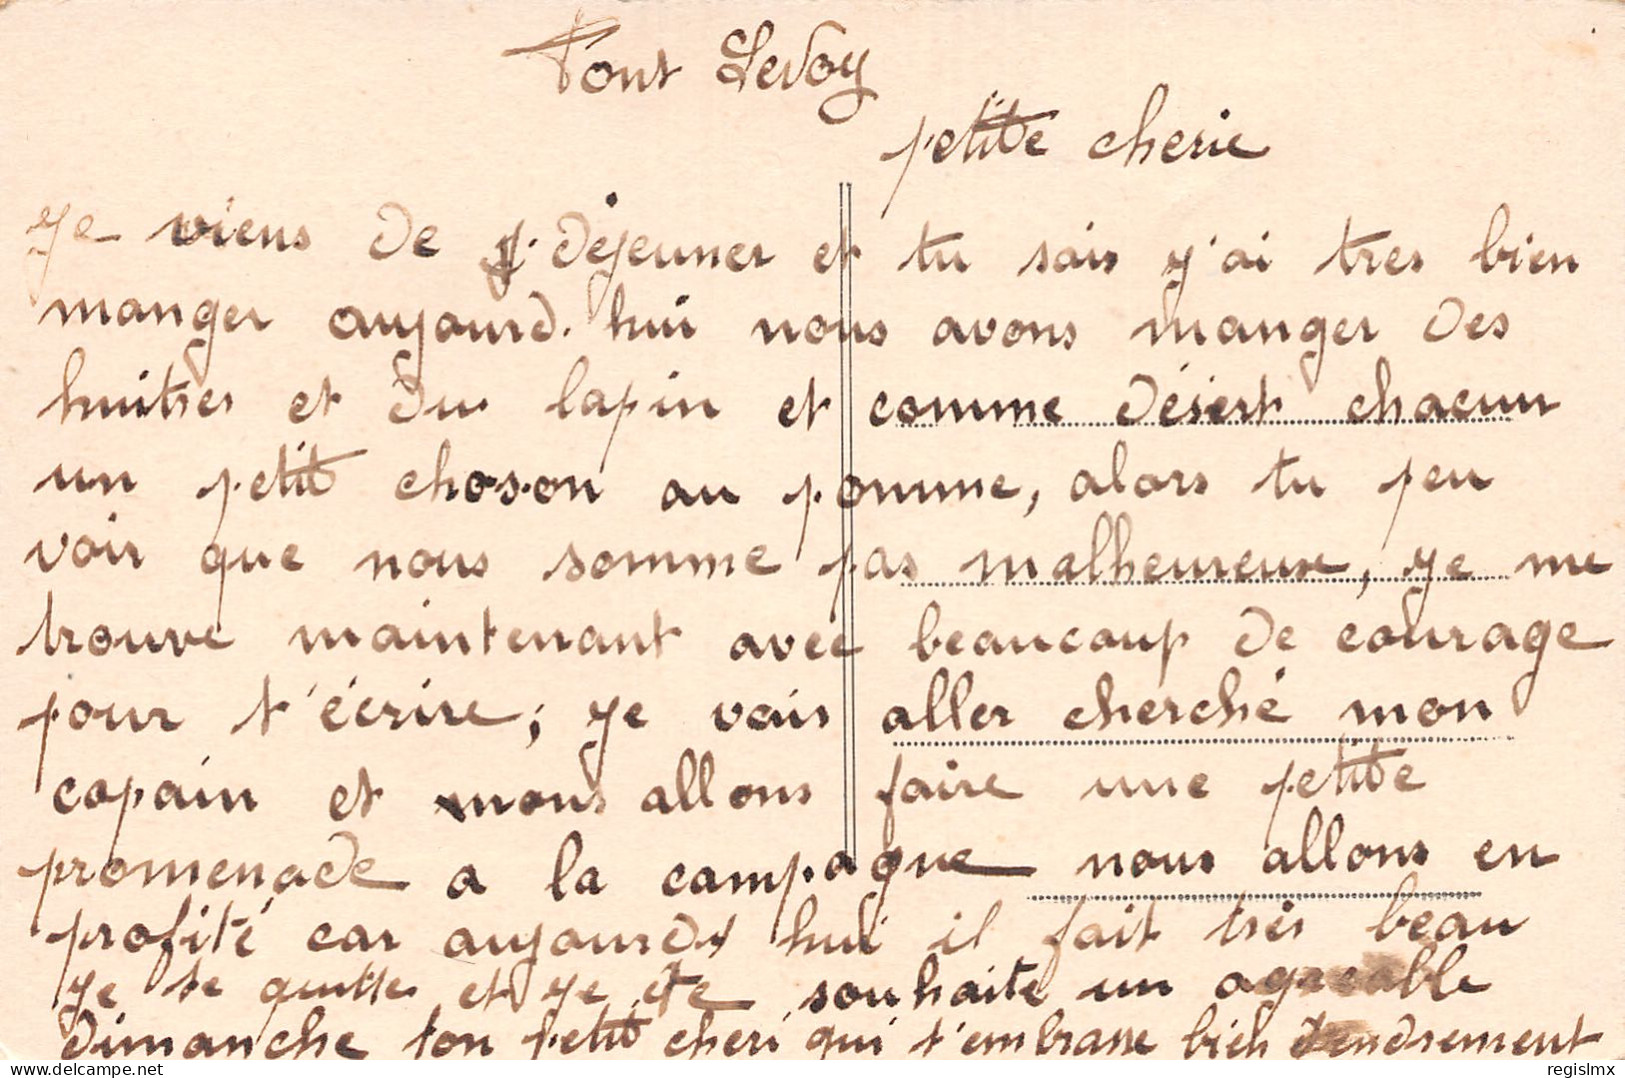 Pont Levoy
petite cherie
Je viens de déjeuner et tu sais j'ai tres bien
manger aujourd'hui nous avons manger des
huitres et du lapin et comme désert chacun
un petit choson au pomme, alors tu peu
voir que nous somme pas malheureuse, je me
trouve maintenant avec beaucoup de courage
pour t'écrire; je vais aller cherché mon
copain et nous allons faire une petite
promenade a la campagne nous allons en
profité car aujourd'hui il fait très beau
je te quitte et je te souhaite un agreable
dimanche ton petit cheri qui t'embrasse bien tendrement
regislmx